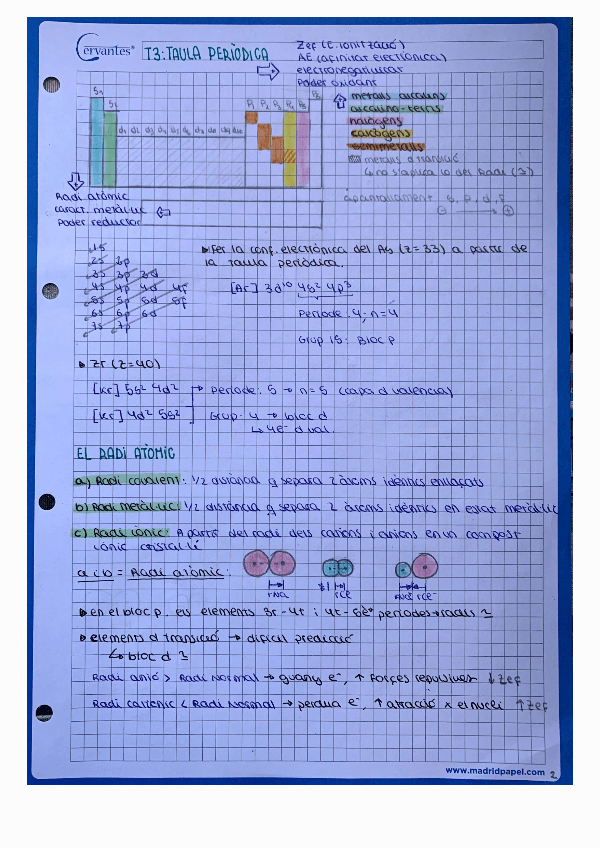 Cervantes®
T3: TAULA PERIÒDICA
Zef (E. ionització)
AE (afinitat electrònica)
electronegativitat
Poder oxidant
S1
S2
P1 P2 P3 P4 P5
P6
d1 d2 d3 d4 d5 d6 d7 d8 d9 d10
metalls alcalins
alcalino-terris
halògens
calcògens
semimetalls
metalls d transició
↳ no s'aplica lo del Radi (3)
apantallament: s, p, d, f
⊖ → ⊕
Radi atòmic
caràct. metàl·lic
Poder reductor
1s
2s 2p
3s 3p 3d
4s 4p 4d 4f
5s 5p 5d 5f
6s 6p 6d
7s 7p
Fer la conf. electrònica del As (z=33) a partir de
la taula periòdica.
[Ar] 3d¹⁰ 4s² 4p³
Període: 4; n=4
Grup 15: Bloc p
Zr (z=40)
[Kr] 5s² 4d²
Període: 5 → n=5 (capa d valència)
[Kr] 4d² 5s²
Grup: 4 → bloc d
↳ 4e⁻ d val.
EL RADI ATÒMIC
a) Radi covalent: 1/2 distància q separa 2 àtoms idèntics enllaçats
b) Radi metàl·lic: 1/2 distància q separa 2 àtoms idèntics en estat metàl·lic
c) Radi iònic: A partir del radi dels cations i anions en un compost
iònic cristal·lí
a i b = Radi atòmic:
rNa
rCl
rNa⁺ rCl⁻
en el bloc p, els elements 3r-4t i 4t-5è períodes → radis ≃
elements d transició → difícil predicció
↳ bloc d ≃
Radi anió > Radi Normal → guany e⁻, ↑ forces repulsives ↓ Zef
Radi catiònic < Radi Normal → pèrdua e⁻, ↑ atracció x el nucli ↑ Zef
www.madridpapel.com
2